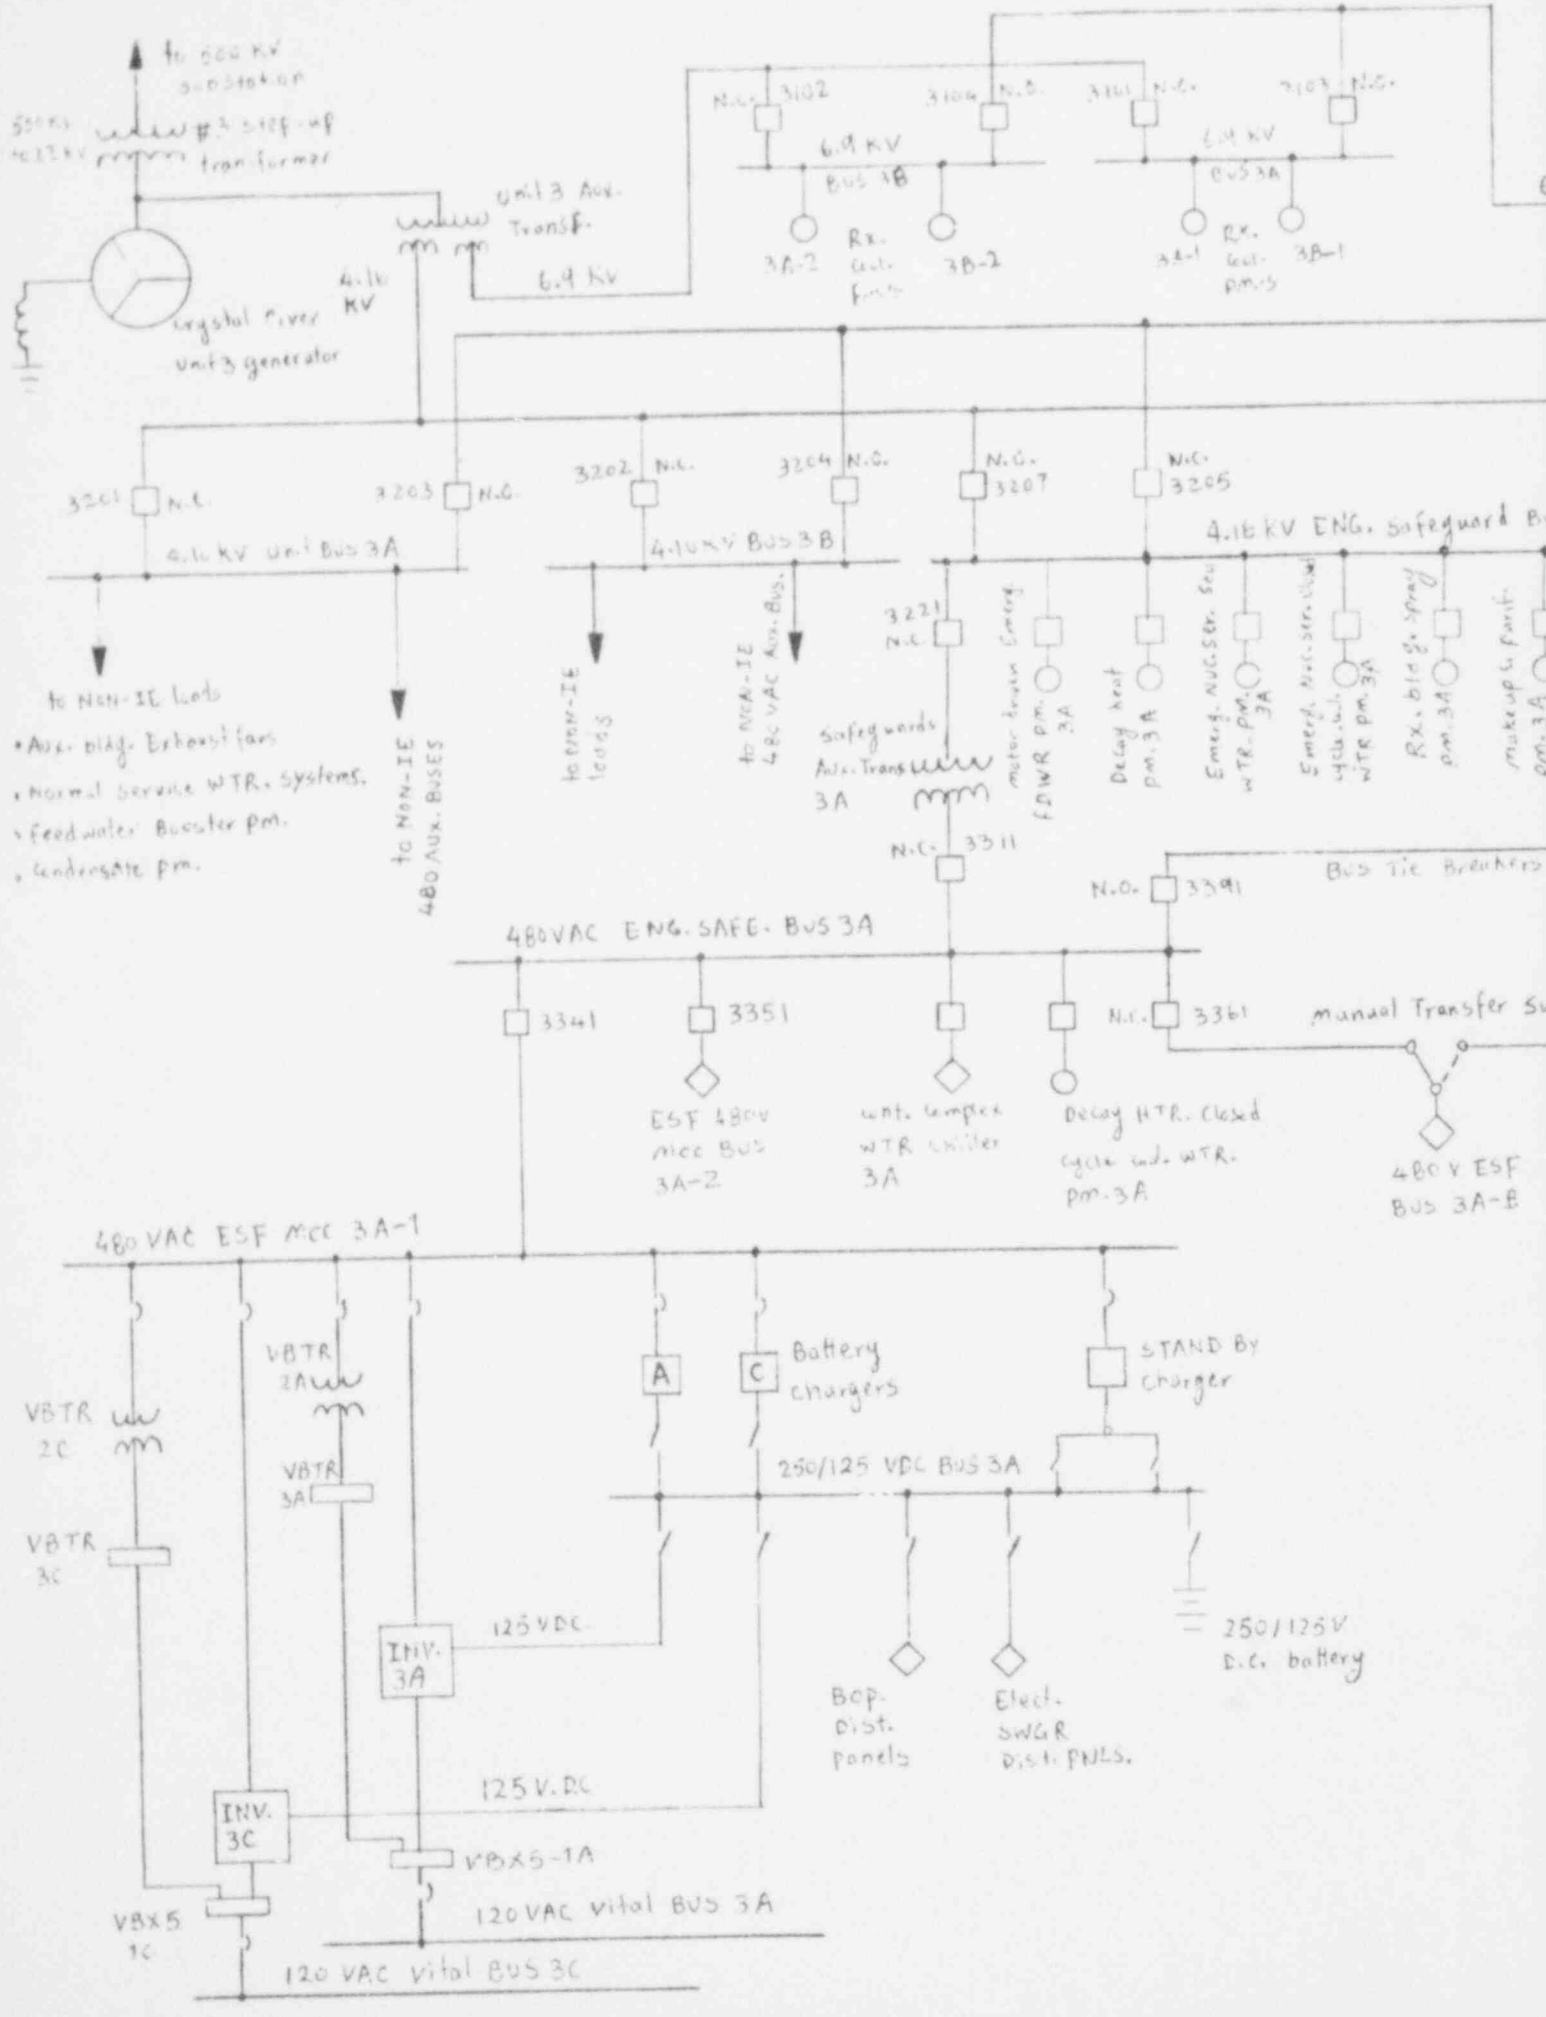 to 500 KV
substation
500 KV
to 22 KV
#3 step-up
transformer
Unit 3 Aux.
Transf.
4.16
KV
6.9 KV
Crystal River
Unit 3 generator
N.C. 3102
3104 N.O.
6.9 KV
BUS 3B
3A-2
Rx.
3B-2
3101 N.C.
3103 N.O.
6.9 KV
BUS 3A
3A-1
Rx.
pm.s
3B-1
3201 N.C.
3203 N.O.
4.16 KV Unit BUS 3A
3202 N.C.
3204 N.O.
4.16 KV BUS 3B
N.O.
3207
N.C.
3205
4.16 KV ENG. Safeguard
to NON-IE loads
• Aux. bldg. Exhaust fans
• Normal Service WTR. systems.
• Feedwater Booster pm.
• Condensate pm.
to NON-IE
480 AUX. BUSES
to NON-IE
loads
to NON-IE
480 VAC Aux. Bus.
3221
N.C.
Safeguards
Aux. Trans
3A
N.C. 3311
Motor driven Emerg.
FDWR pm.
3A
Decay heat
pm. 3A
Emerg. NUC. Ser. Sea
WTR. pm.
3A
Emerg. Nuc. Ser. closed
cycle
WTR pm. 3A
Rx. bldg. spray
pm. 3A
makeup & purif.
pm. 3A
N.O. 3391
Bus Tie Breakers
480VAC ENG. SAFE. BUS 3A
3341
3351
N.C. 3361
Manual Transfer
ESF 480V
MCC BUS
3A-2
cont. complex
WTR chiller
3A
Decay HTR. Closed
cycle WTR.
pm. 3A
480 V ESF
BUS 3A-B
480 VAC ESF MCC 3A-1
VBTR
2C
VBTR
3C
VBTR
2A
VBTR
3A
A
C
Battery
chargers
STAND BY
Charger
250/125 VDC BUS 3A
INV.
3A
125 VDC
INV.
3C
125 V.DC
Bop.
Dist.
panels
Elect.
SWGR
Dist. PNLS.
250/125V
D.C. battery
VBX5-1A
VBX5
1C
120 VAC Vital BUS 3A
120 VAC Vital BUS 3C